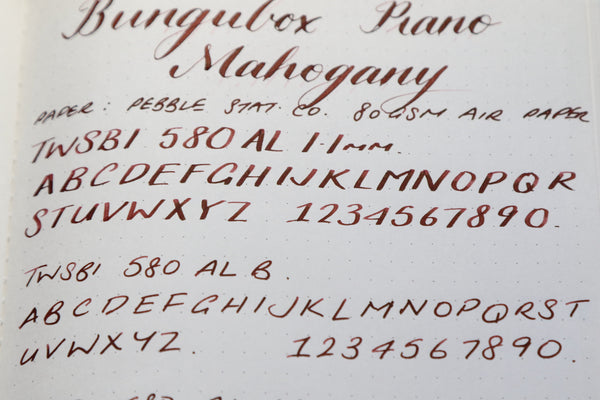 Bungubox Piano
Mahogany
PAPER: PEBBLE STAT. CO. 80GSM AIR PAPER
TWSBI 580 AL 1.1mm.
ABCDEFGHIJKLMNOPQR
STUVWXYZ 1234567890.
TWSBI 580 AL B.
ABCDEFGHIJKLMNOPQRST
UVWXYZ. 1234567890.